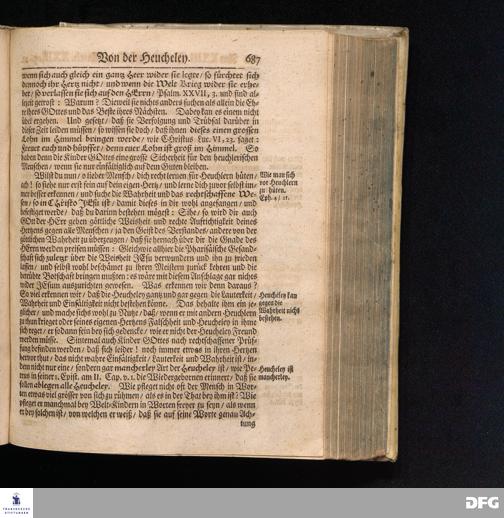 Von der Heucheley. 687
wenn sich auch gleich ein gantz Heer wider sie legte / so fürchtet sich
dennoch ihr Hertz nicht / und wenn die Welt Krieg wider sie erhe-
bet / so verlassen sie sich auf den HErrn / Psalm. XXVII, 3. und sind al-
lezeit getrost: Warum? Dieweil sie nichts anders suchen als allein die Eh-
re ihres GOttes und das Beste ihres Nächsten. Dabey kan es einem nicht
übel ergehen. Und gesetzt / daß sie Verfolgung und Trübsal darüber in
dieser Zeit leiden müssen / so wissen sie doch / daß ihnen dieses einen grossen
Lohn im Himmel bringen werde / wie Christus Luc. VI, 23. saget:
freuet euch und hüpffet / denn euer Lohn ist groß im Himmel. So
haben denn die Kinder GOttes eine grosse Sicherheit für den heuchlerischen
Menschen / wenn sie nur einfältiglich auf dem Guten bleiben.
Wilst du nun / o lieber Mensch / dich recht lernen für Heuchlern hüten /
ach! so siehe nur erst fein auf dein eigen Hertz / und lerne dich zuvor selbst im-
mer besser erkennen / und suche die Wahrheit und das rechtschaffene We-
sen / so in Christo JEsu ist / damit dieses in dir wohl angefangen / und
befestiget werde / daß du darinn bestehen mögest: Sihe / so wird dir auch
GOtt der HErr geben göttliche Weisheit und rechte Aufrichtigkeit deines
Hertzens gegen alle Menschen / ja den Geist des Verstandes / andere von der
göttlichen Wahrheit zu überzeugen / daß sie hernach über dir die Gnade des
HErrn werden preisen müssen: Gleichwie allhier die Pharisäische Gesand-
schafft sich zuletzt über die Weisheit JEsu verwundern und ihn zu frieden
lassen / und selbst wohl beschämet zu ihren Meistern zurück kehren und die
betrübte Botschafft bringen musten: es wäre mit diesem Anschlage gar nichts
wider JEsum auszurichten gewesen. Was erkennen wir denn daraus?
So viel erkennen wir / daß die Heucheley gantz und gar gegen die Lauterkeit /
Wahrheit und Einfältigkeit nicht bestehen könne. Das behalte ihm ein je-
glicher / und mache sichs wohl zu Nutze / daß / wenn er mit andern Heuchlern
zu thun krieget oder seines eigenen Hertzens Falschheit und Heucheley in ihme
sich reget / er so dann fein bey sich gedencke / wie er nicht der Heucheley Freund
werden müsse. Sintemal auch Kinder GOttes nach rechtschaffener Prüf-
fung befinden werden / daß sich leider! noch immer etwas in ihren Hertzen
hervor thut / das nicht wahre Einfältigkeit / Lauterkeit und Wahrheit ist / in-
dem nicht nur eine / sondern gar mancherley Art der Heucheley ist / wie Pe-
trus in seiner 1. Epist. am II. Cap. v. 1. die Wiedergebornen erinnert / daß sie
sollen ablegen alle Heucheley. Wie pfleget nicht oft der Mensch in Wor-
ten etwas viel grösser von sich zu rühmen / als es in der That bey ihm ist? Wie
pfleget er manchmal bey Welt-Kindern in Worten freyer zu seyn / als wenn
er bey solchen ist / von welchen er weiß / daß sie auf seine Worte genau Ach-
tung
Wie man sich
vor Heuchlern
zu hüten.
Eph. 4 / 21.
Heucheley kan
gegen die
Wahrheit nicht
bestehen.
Heucheley ist
mancherley.
FRANCKESCHE
STIFTUNGEN
DFG